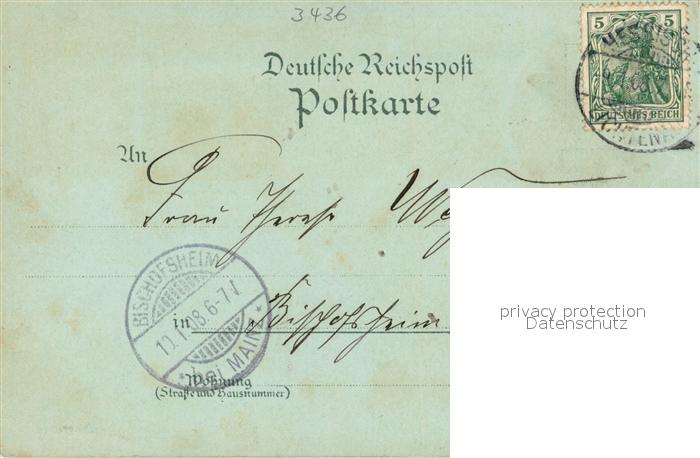 3436
Deutsche Reichspost
Postkarte
5 5
DEUTSCHES REICH
An
Frau Therese
BISCHOFSHEIM
10.1.08.6-7
bei MAINZ
in Bischofsheim
Wohnung
(Straße und Hausnummer)
privacy protection
Datenschutz